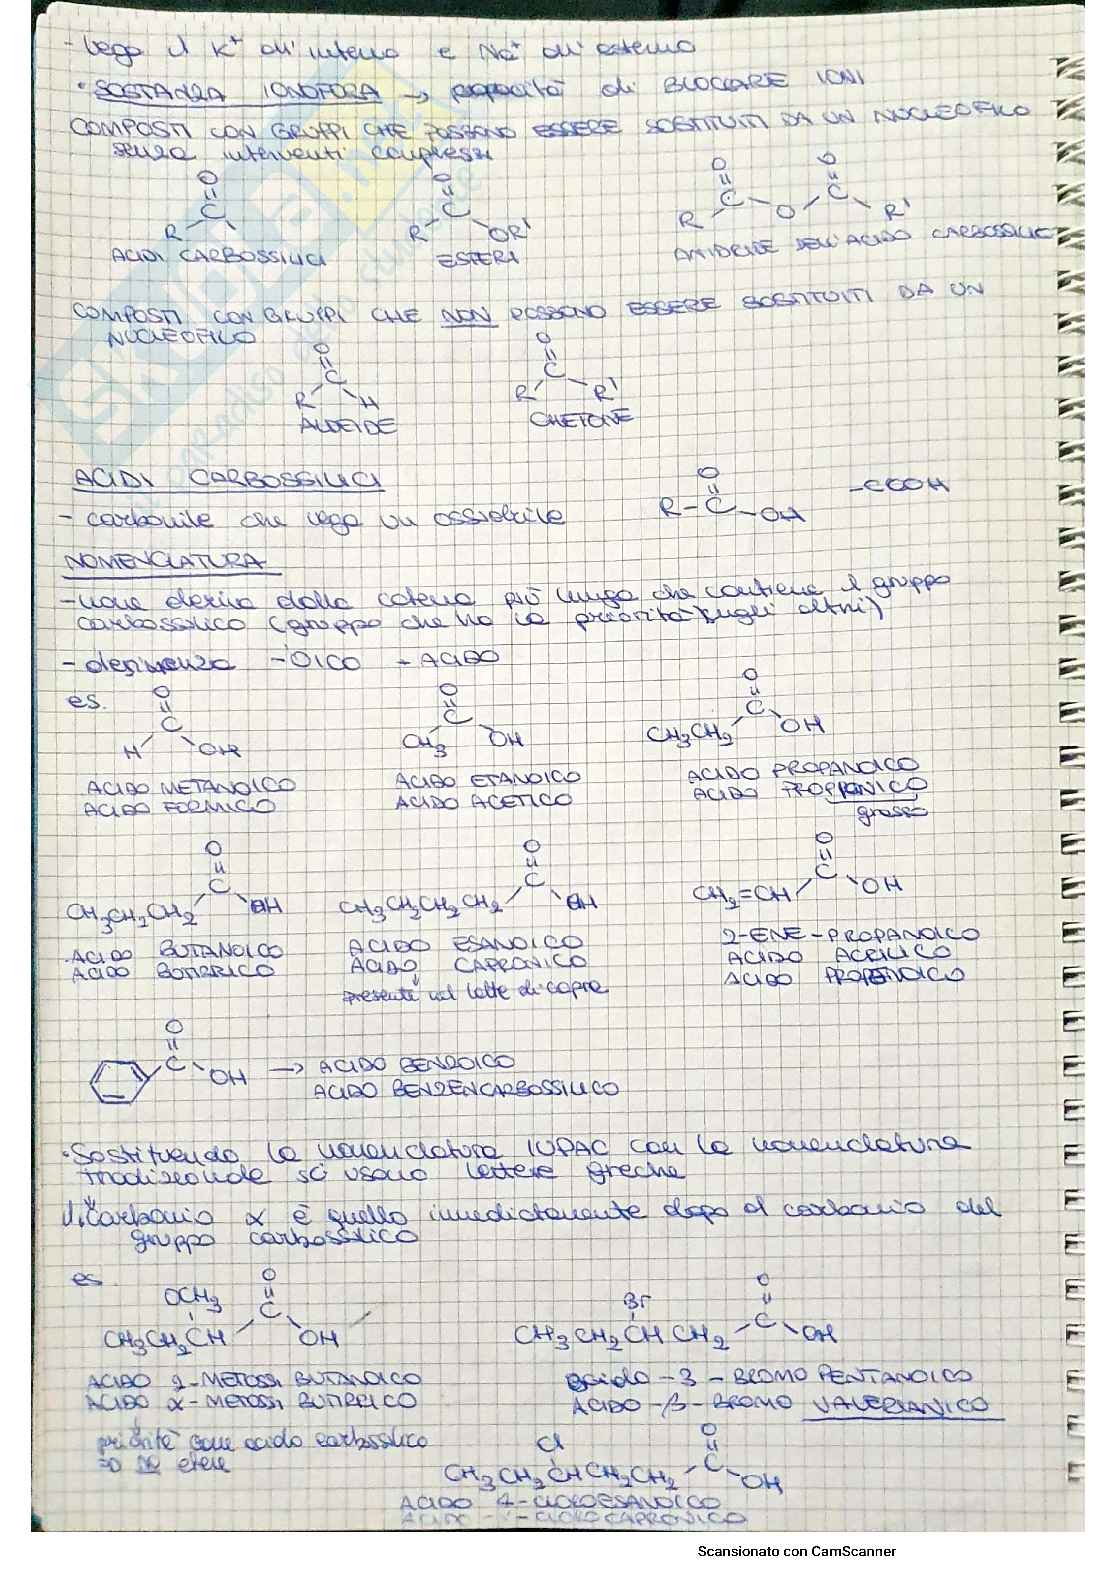 - lega il K+ all'interno e Na+ all'esterno
• SOSTANZA IONOFORA → capacità di BLOCCARE IONI
COMPOSTI CON GRUPPI CHE POSSONO ESSERE SOSTITUITI DA UN NUCLEOFILO
senza interventi complessi
O O O O
C C C C
R R OR' R O R'
ACIDI CARBOSSILICI ESTERI ANIDRIDE DELL'ACIDO CARBOSSILICO
COMPOSTI CON GRUPPI CHE NON POSSONO ESSERE SOSTITUITI DA UN
NUCLEOFILO
O O
C C
R H R R'
ALDEIDE CHETONE
ACIDI CARBOSSILICI
O
R-C-OH -COOH
- carbonile che lega un ossidrile
NOMENCLATURA
- nome deriva dalla catena più lunga che contiene il gruppo
carbossilico (gruppo che ha la priorità sugli altri)
- desinenza -OICO - ACIDO
es.
O O O
C C C
H OH CH3 OH CH3CH2 OH
ACIDO METANOICO ACIDO ETANOICO ACIDO PROPANOICO
ACIDO FORMICO ACIDO ACETICO ACIDO PROPIONICO
grasso
O O O
C C C
CH3CH2CH2 OH CH3CH2CH2CH2CH2 OH CH2=CH OH
ACIDO BUTANOICO ACIDO ESANOICO 2-ENE-PROPANOICO
ACIDO BUTIRRICO ACIDO CAPRONICO ACIDO ACRILICO
presente nel latte di capra ACIDO PROPENOICO
O
C
OH → ACIDO BENZOICO
ACIDO BENZENCARBOSSILICO
• Sostituendo la nomenclatura IUPAC con la nomenclatura
tradizionale si usano lettere greche
il carbonio α è quello immediatamente dopo il carbonio del
gruppo carbossilico
es.
OCH3 O Br O
C C
CH3CH2CH OH CH3CH2CHCH2 OH
ACIDO 2-METOSSI BUTANOICO acido-3-BROMO PENTANOICO
ACIDO α-METOSSI BUTIRRICO ACIDO-β-BROMO VALERIANICO
priorità come acido carbossilico
=> no etere
Cl O
C
CH3CH2CHCH2CH2 OH
ACIDO 4-CLOROESANOICO
CLOROCAPRONICO
Scansionato con CamScanner